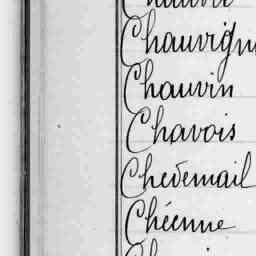 Chauvign
Chauvin
Chavois
Chedemail
Chéenne